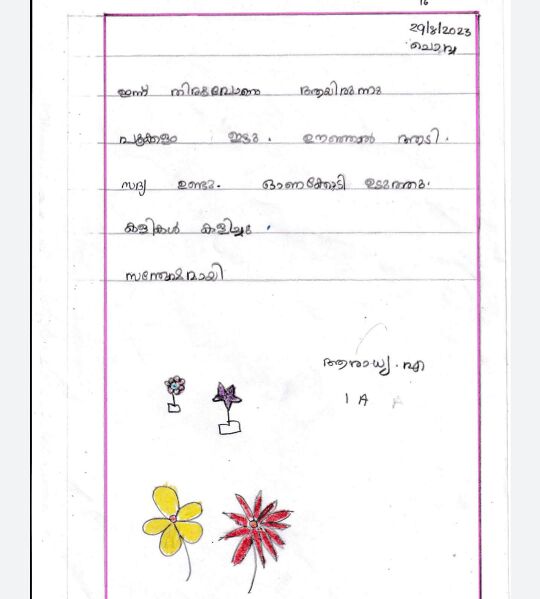 16
29/8/2023
ചൊവ്വ
ഇന്ന് തിരുവോണം ആയിരുന്നു
പൂക്കളം ഇട്ടു. ഊഞ്ഞാൽ ആടി.
സദ്യ ഉണ്ടു. ഓണക്കോടി ഉടുത്തു.
കളികൾ കളിച്ചു.
സന്തോഷമായി
ആരാധ്യ. എ
1 A A